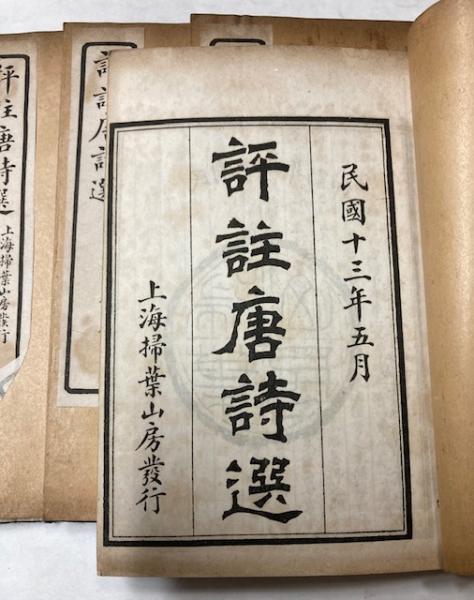 民國十三年五月
評註唐詩選
上海掃葉山房發行
評註唐詩選
評註唐詩選
上海掃葉山房發行